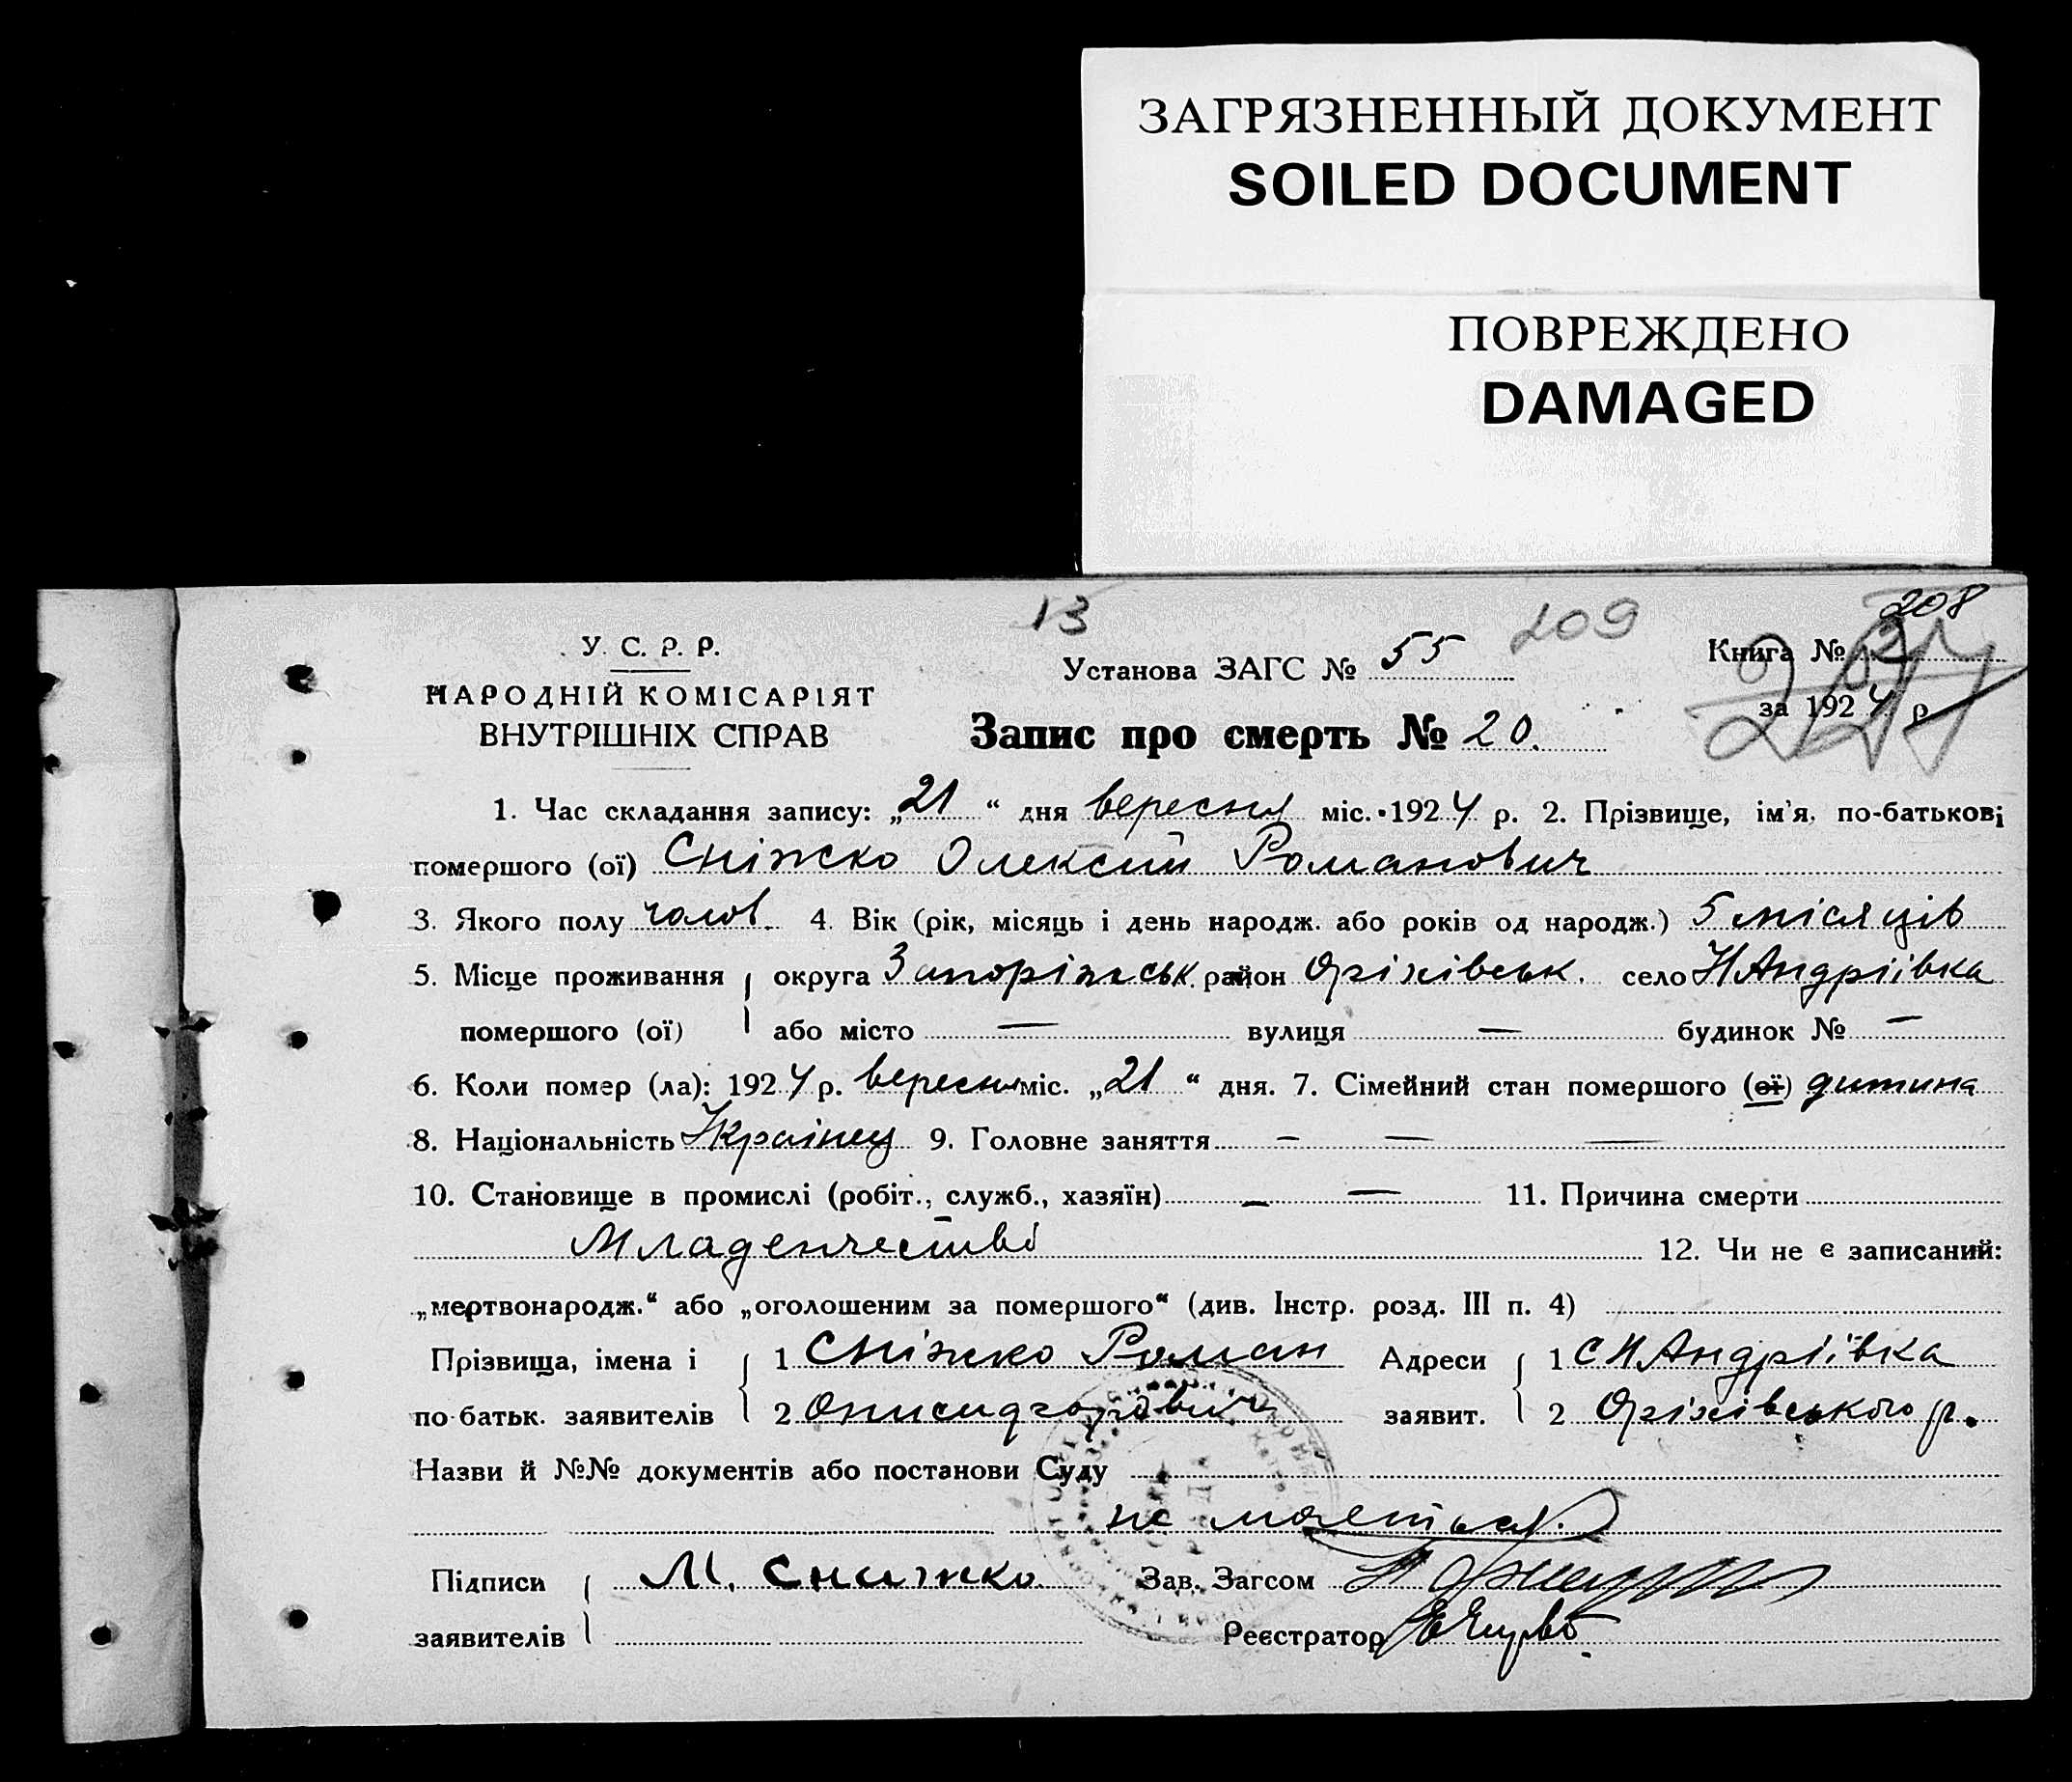 ЗАГРЯЗНЕННЫЙ ДОКУМЕНТ
SOILED DOCUMENT
ПОВРЕЖДЕНО
DAMAGED
13
209
208
У. С. Р. Р.
НАРОДНІЙ КОМІСАРІЯТ
ВНУТРІШНІХ СПРАВ
Установа ЗАГС № 55
Книга №
за 1924 р.
Запис про смерть № 20.
1. Час складання запису: „21“ дня вересня міс. 1924 р. 2. Прізвище, ім'я, по-батькові
помершого (ої) Сніжко Олексій Романович
3. Якого полу чолов. 4. Вік (рік, місяць і день народж. або років од народж.) 5 місяців
5. Місце проживання округа Запоріжськ. район Оріхівськ. село Н Андріївка
помершого (ої) або місто — вулиця — будинок № —
6. Коли помер (ла): 1924 р. вересня міс. „21“ дня. 7. Сімейний стан помершого (ої) дитина
8. Національність Украінец 9. Головне заняття — — —
10. Становище в промислі (робіт., служб., хазяїн) — — 11. Причина смерти
Младенчество 12. Чи не є записаний:
„мертвонародж.“ або „оголошеним за помершого“ (див. Інстр. розд. III п. 4)
Прізвища, імена і 1 Сніжко Роман Адреси 1 С Н Андріївка
по-батьк. заявителів 2 заявит. 2 Оріхівського р.
Назви й №№ документів або постанови Суду
не маеться.
Підписи М. Снижко. Зав. Загсом
заявителів Реєстратор